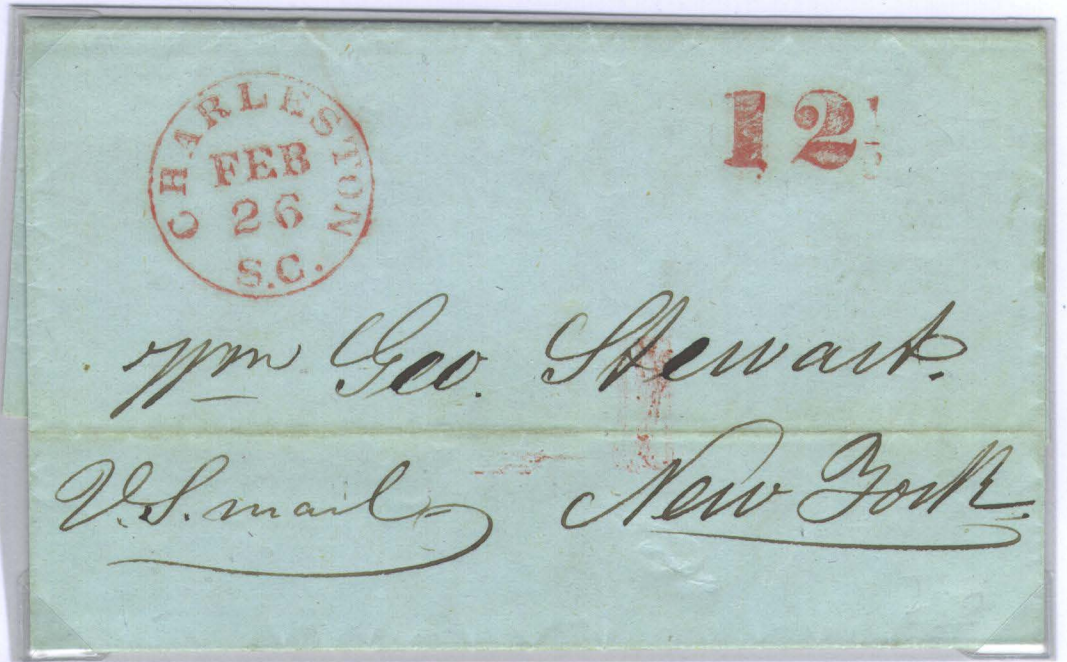 CHARLESTON
FEB
26
S.C.
12½
Wm Geo. Stewart.
U.S. mail
New York.